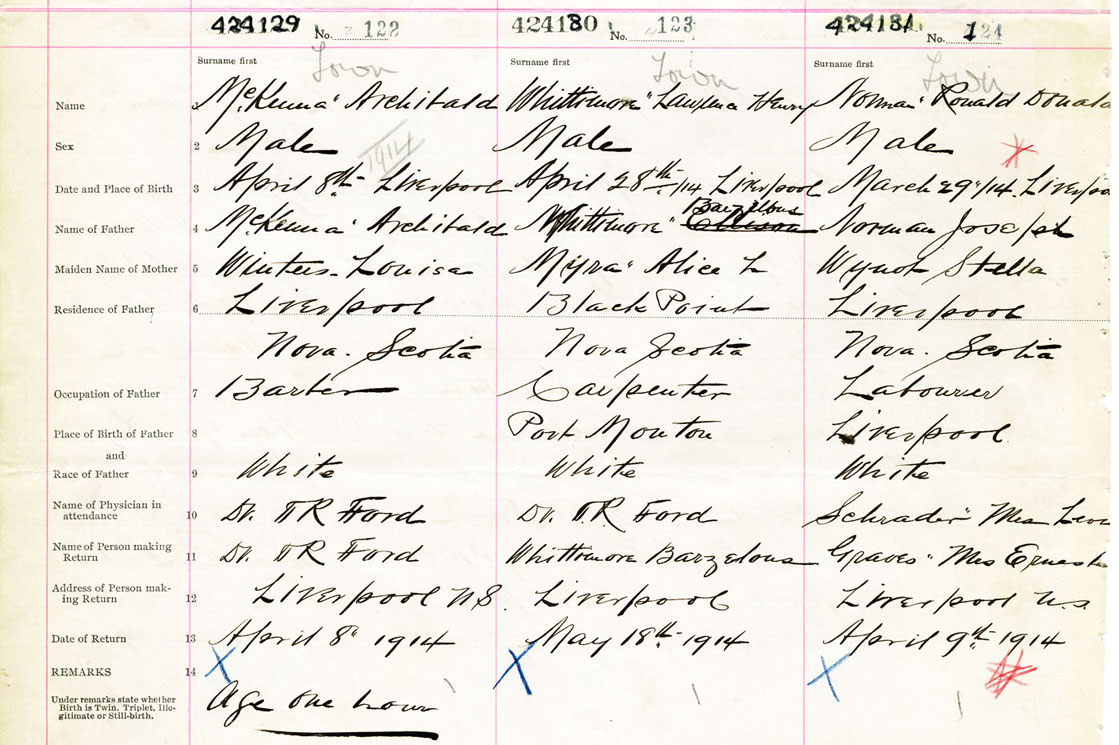 424129 No. 122 424130 No. 123 424131 No. 124
Town Town Town
Surname first Surname first Surname first
Name 1 McKenna" Archibald Whittimore" Lawrence Henry Norman" Ronald Donald
Sex 2 Male Male Male
1914
Date and Place of Birth 3 April 8th Liverpool April 28th/14 Liverpool March 29"/14. Liverpoo
Barzelous
Name of Father 4 McKenna" Archibald Whittimore" Norman Joseph
Maiden Name of Mother 5 Winters-Louisa Myra" Alice L Wynot Stella
Residence of Father 6 Liverpool Black Point Liverpool
Nova. Scotia Nova Scotia Nova. Scotia
Occupation of Father 7 Barber Carpenter Labourer
Place of Birth of Father 8 Port Mouton Liverpool
and
Race of Father 9 White White White
Name of Physician in
attendance 10 Dr. TR Ford Dr. T.R Ford Schrader" Mrs
Name of Person making
Return 11 Dr. TR Ford Whittimore Barzelous Graves" Mrs Ernest
Address of Person mak-
ing Return 12 Liverpool N.S. Liverpool Liverpool N.S.
Date of Return 13 April 8" 1914 May 18th 1914 April 9th 1914
REMARKS 14
Under remarks state whether
Birth is Twin, Triplet, Ille-
gitimate or Still-birth.
Age one hour